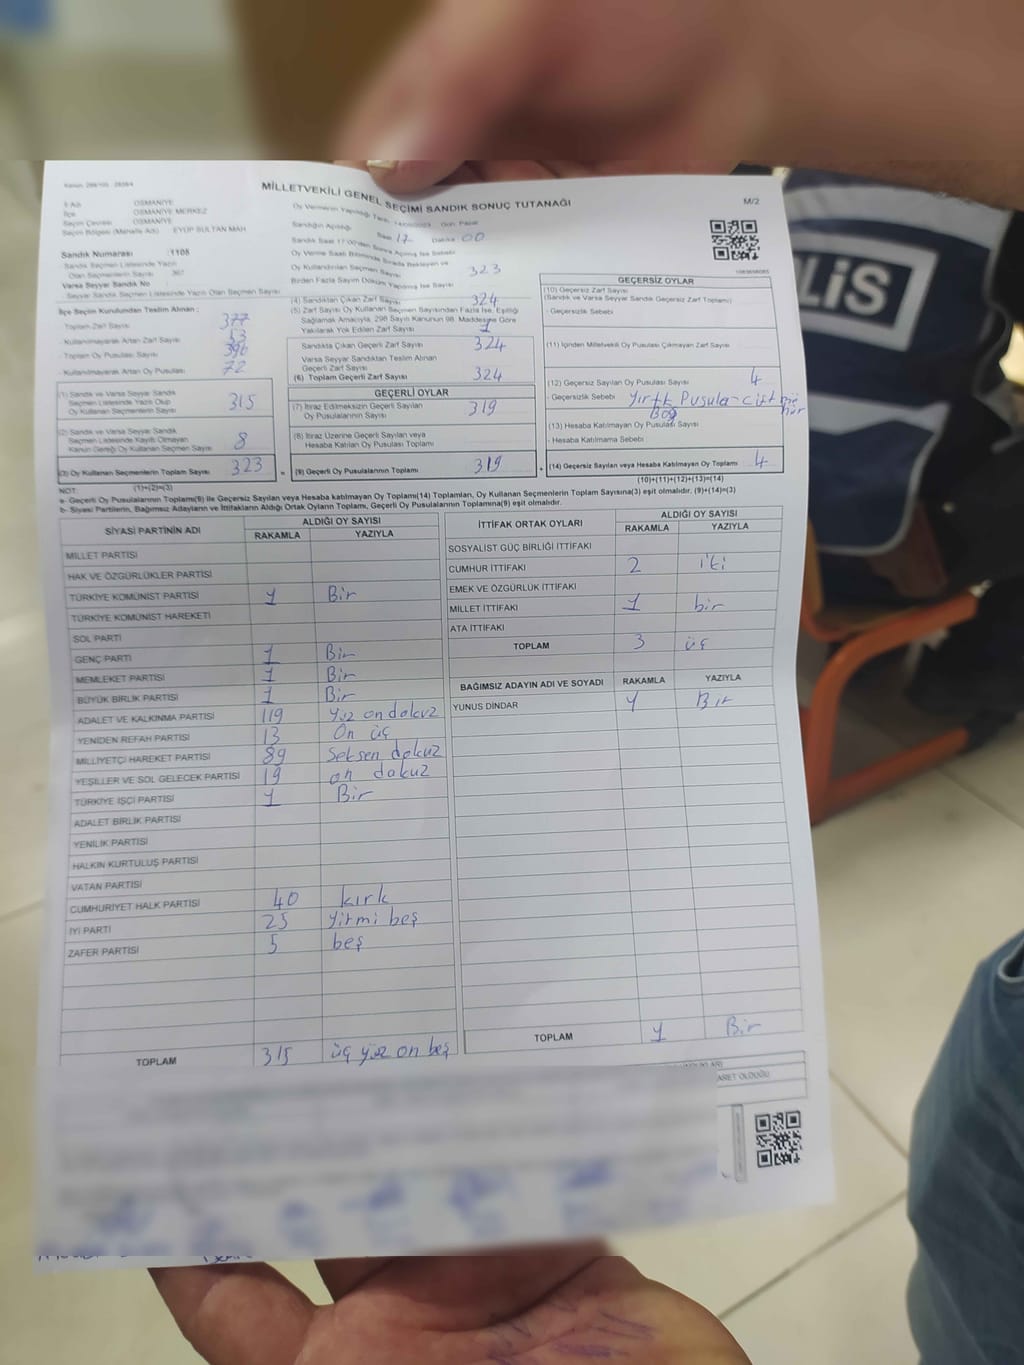 MİLLETVEKİLİ GENEL SEÇİMİ SANDIK SONUÇ TUTANAĞI
M/2
İl Adı OSMANİYE
İlçe OSMANİYE MERKEZ
Seçim Çevresi OSMANİYE
Seçim Bölgesi (Mahalle Adı) EYÜP SULTAN MAH
Sandık Numarası :1105
Sandık Seçmen Listesinde Yazılı
Olan Seçmenlerin Sayısı 367
Varsa Seyyar Sandık No
Seyyar Sandık Seçmen Listesinde Yazılı Olan Seçmen Sayısı
Sandığın Açıldığı Saat 17 Dakika 00
Oy Kullandırılan Seçmen Sayısı 323
Birden Fazla Sayım Döküm Yapılmış İse Sayısı
İlçe Seçim Kurulundan Teslim Alınan :
Toplam Zarf Sayısı 377
Kullanılmayarak Artan Zarf Sayısı 53
Toplam Oy Pusulası Sayısı 396
Kullanılmayarak Artan Oy Pusulası 72
(1) Sandık ve Varsa Seyyar Sandık
Seçmen Listesinde Yazılı Olup
Oy Kullanan Seçmenlerin Sayısı 315
(2) Sandık ve Varsa Seyyar Sandık
Seçmen Listesinde Kayıtlı Olmayan
Kanun Gereği Oy Kullanan Seçmen Sayısı 8
(3) Oy Kullanan Seçmenlerin Toplam Sayısı 323
(1)+(2)=(3)
(4) Sandıktan Çıkan Zarf Sayısı 324
(5) Zarf Sayısı Oy Kullanan Seçmen Sayısından Fazla İse, Eşitliği
Sağlamak Amacıyla, 298 Sayılı Kanunun 98. Maddesine Göre
Yakılarak Yok Edilen Zarf Sayısı 1
Sandıkta Çıkan Geçerli Zarf Sayısı 324
Varsa Seyyar Sandıktan Teslim Alınan
Geçerli Zarf Sayısı
(6) Toplam Geçerli Zarf Sayısı 324
GEÇERLİ OYLAR
(7) İtiraz Edilmeksizin Geçerli Sayılan
Oy Pusulalarının Sayısı 319
(8) İtiraz Üzerine Geçerli Sayılan veya
Hesaba Katılan Oy Pusulası Toplamı
= (9) Geçerli Oy Pusulalarının Toplamı 319
GEÇERSİZ OYLAR
(10) Geçersiz Zarf Sayısı
(Sandık ve Varsa Seyyar Sandık Geçersiz Zarf Toplamı)
- Geçersizlik Sebebi
(11) İçinden Milletvekili Oy Pusulası Çıkmayan Zarf Sayısı
(12) Geçersiz Sayılan Oy Pusulası Sayısı 4
- Geçersizlik Sebebi Yırtık Pusula - Çift mühür
Boş
(13) Hesaba Katılmayan Oy Pusulası Sayısı
- Hesaba Katılmama Sebebi
+ (14) Geçersiz Sayılan veya Hesaba Katılmayan Oy Toplamı 4
(10)+(11)+(12)+(13)=(14)
NOT:
a- Geçerli Oy Pusulalarının Toplamı(9) ile Geçersiz Sayılan veya Hesaba katılmayan Oy Toplamı(14) Toplamları, Oy Kullanan Seçmenlerin Toplam Sayısına(3) eşit olmalıdır. (9)+(14)=(3)
b- Siyasi Partilerin, Bağımsız Adayların ve İttifakların Aldığı Ortak Oyların Toplamı, Geçerli Oy Pusulalarının Toplamına(9) eşit olmalıdır.
SİYASİ PARTİNİN ADI ALDIĞI OY SAYISI
RAKAMLA YAZIYLA
MİLLET PARTİSİ
HAK VE ÖZGÜRLÜKLER PARTİSİ
TÜRKİYE KOMÜNİST PARTİSİ 1 Bir
TÜRKİYE KOMÜNİST HAREKETİ
SOL PARTİ
GENÇ PARTİ 1 Bir
MEMLEKET PARTİSİ 1 Bir
BÜYÜK BİRLİK PARTİSİ 1 Bir
ADALET VE KALKINMA PARTİSİ 119 Yüz on dokuz
YENİDEN REFAH PARTİSİ 13 On üç
MİLLİYETÇİ HAREKET PARTİSİ 89 Seksen dokuz
YEŞİLLER VE SOL GELECEK PARTİSİ 19 on dokuz
TÜRKİYE İŞÇİ PARTİSİ 1 Bir
ADALET BİRLİK PARTİSİ
YENİLİK PARTİSİ
HALKIN KURTULUŞ PARTİSİ
VATAN PARTİSİ
CUMHURİYET HALK PARTİSİ 40 kırk
İYİ PARTİ 25 Yirmi beş
ZAFER PARTİSİ 5 beş
TOPLAM 315 üç yüz on beş
İTTİFAK ORTAK OYLARI ALDIĞI OY SAYISI
RAKAMLA YAZIYLA
SOSYALİST GÜÇ BİRLİĞİ İTTİFAKI
CUMHUR İTTİFAKI 2 iki
EMEK VE ÖZGÜRLÜK İTTİFAKI
MİLLET İTTİFAKI 1 bir
ATA İTTİFAKI
TOPLAM 3 üç
BAĞIMSIZ ADAYIN ADI VE SOYADI RAKAMLA YAZIYLA
YUNUS DİNDAR 1 Bir
TOPLAM 1 Bir
LİS